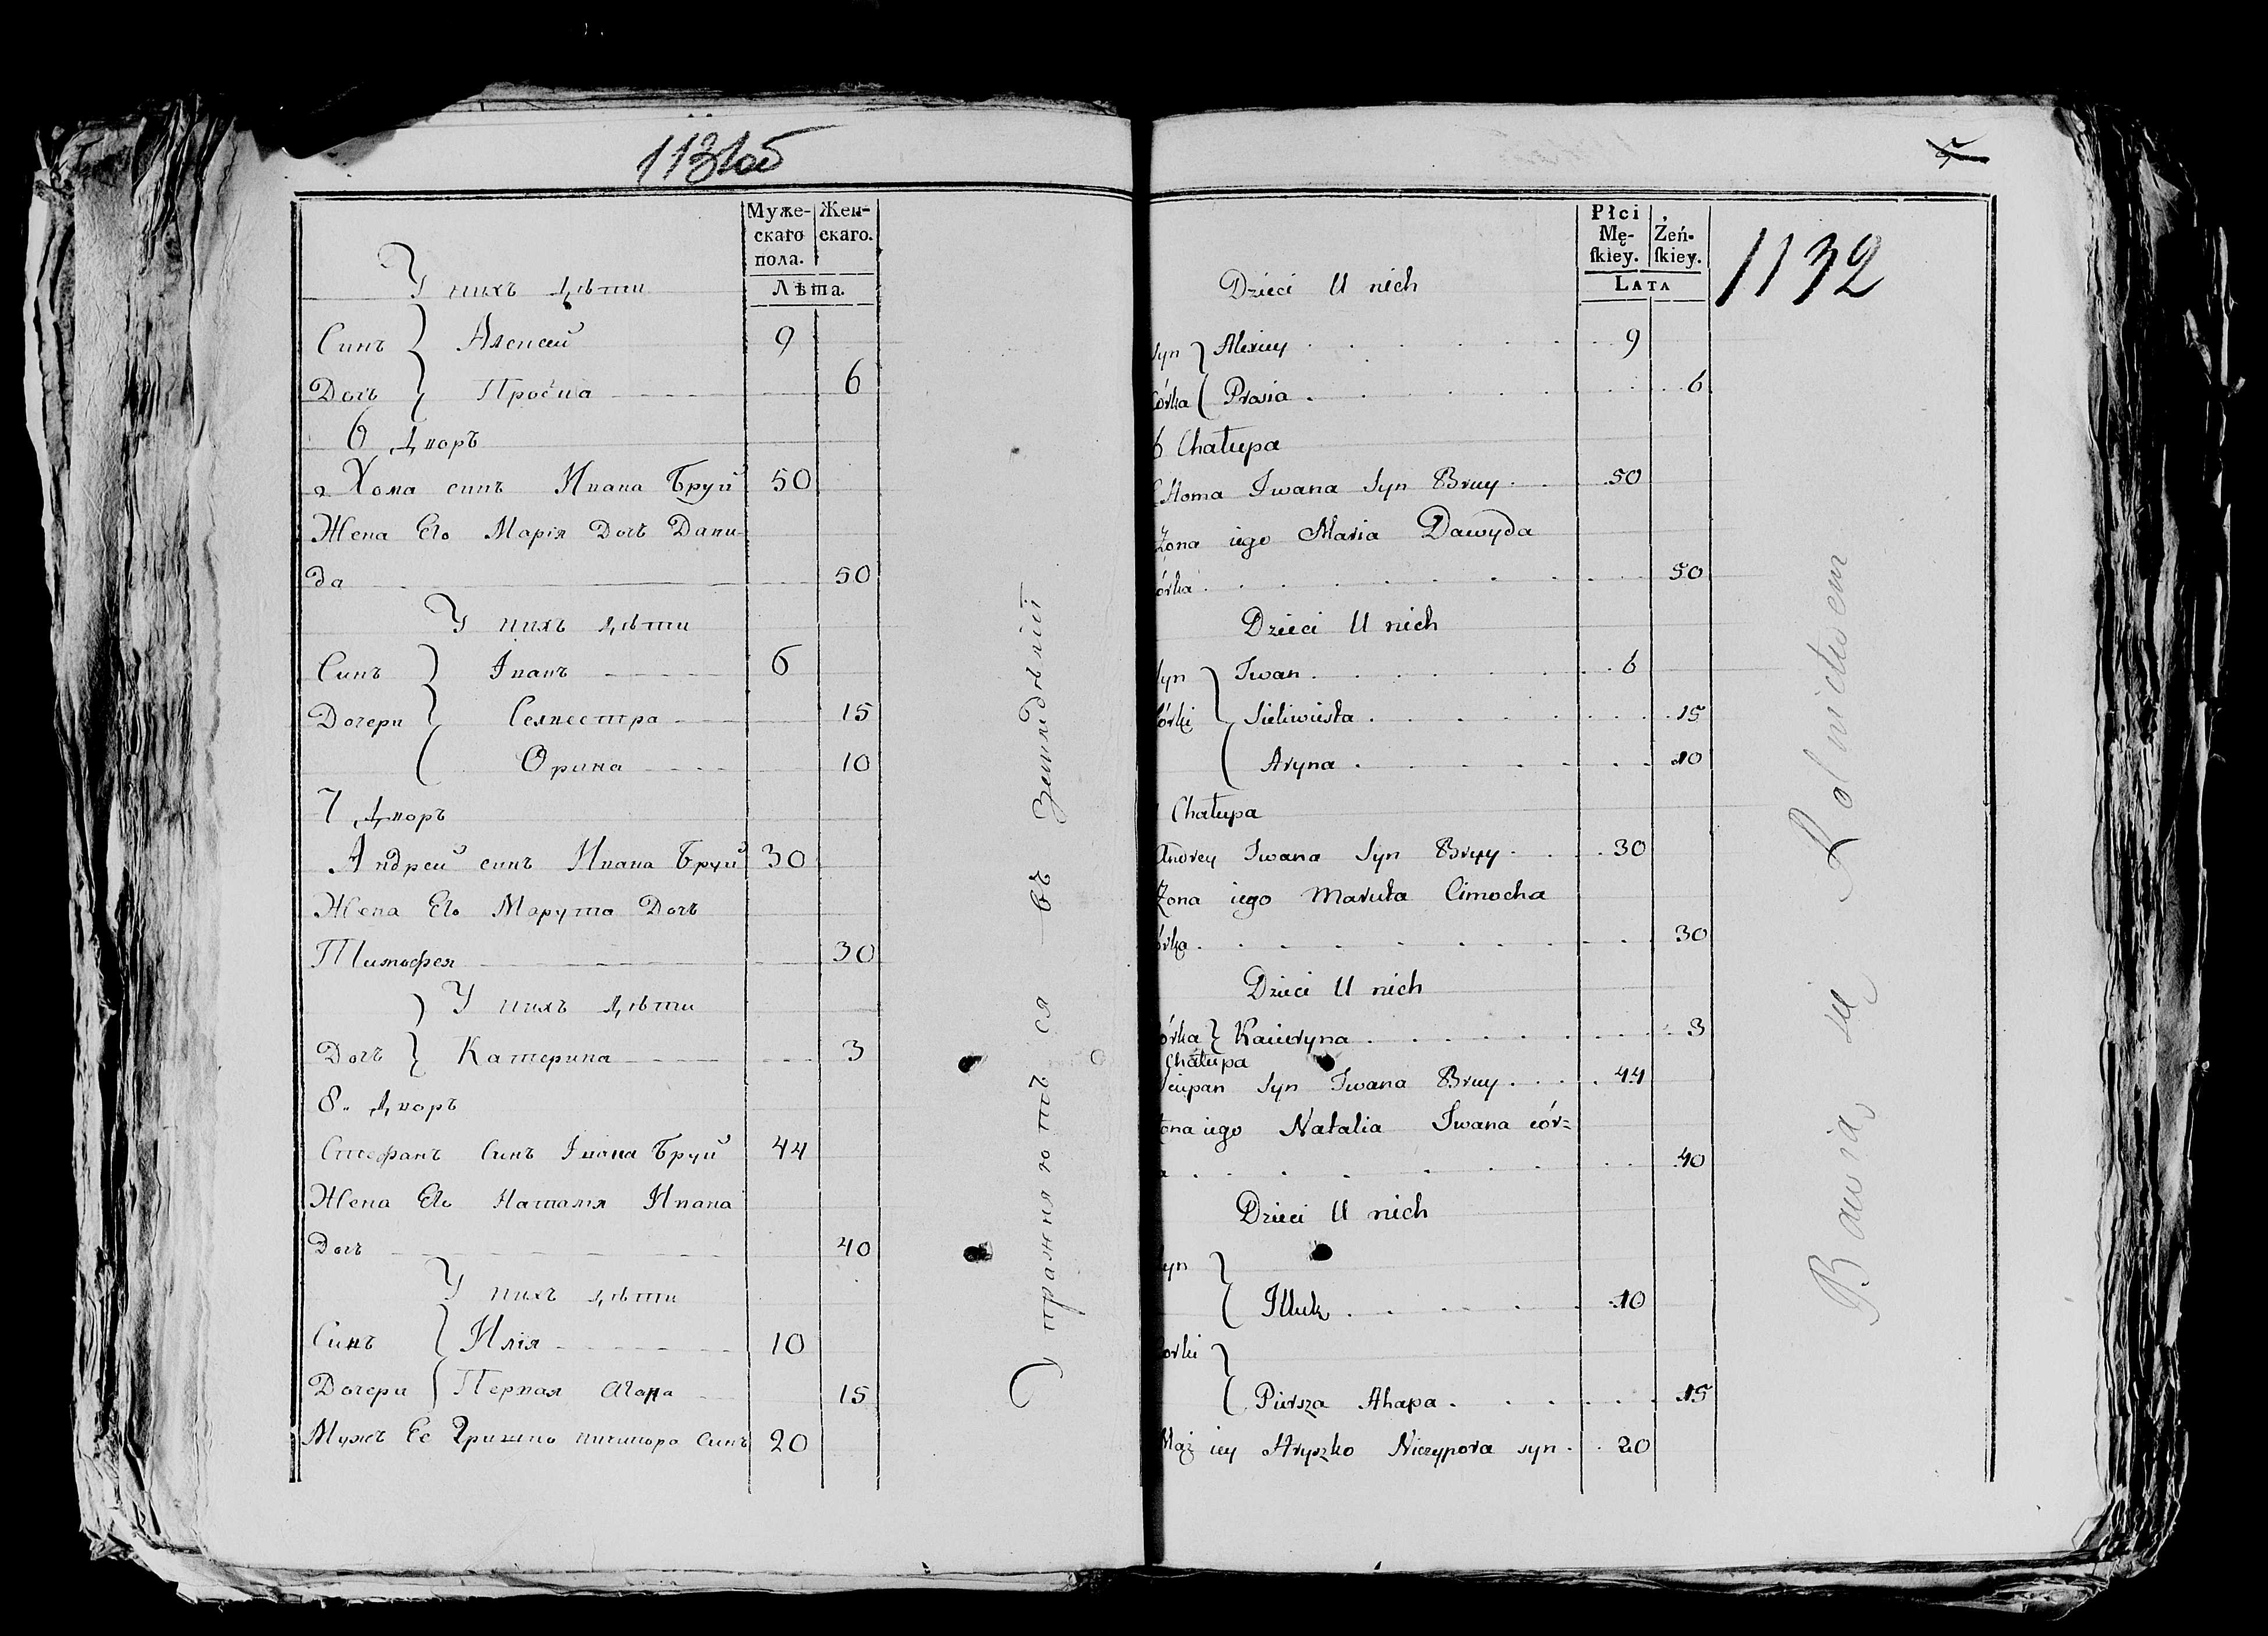 1131об
Муже- Жен-
скаго скаго.
пола.
Лѣта.
У нихъ дѣти
Синъ Алексей 9
Дочъ Просиа 6
6 Дворъ
Хома синъ Ивана Бруй 50
Жена Его Марія Дочъ Дави
да 50
У нихъ дѣти
Синъ Іванъ 6
Дочери Селвестра 15
Орина 10
7 Дворъ
Андрей синъ Ивана Бруй 30
Жена Его Марута Дочъ
Тимофея 30
У нихъ дѣти
Дочъ Катерина 3
8. Дворъ
Стефанъ Синъ Івана Бруй 44
Жена Его Наталія Ивана
Дочъ 40
У нихъ дѣти
Синъ Илія 10
Дочери Первая Агапа 15
Мужъ Ее Гришко ничипора Синъ 20
Упражняютъ ся въ Земледѣліи
1132
Płci
Mę- Żeń-
ſkiey. ſkiey.
LATA
Dzieci U nich
Syn Alexiey 9
Córka Prasia 6
6 Chałupa
Choma Iwana Syn Bruy 50
Żona iego Maria Dawyda
córka 50
Dzieci U nich
Syn Iwan 6
Córki Sieliwiesta 15
Aryna 10
Chałupa
Andrey Iwana Syn Bruy 30
Żona iego Maruta Cimocha
córka 30
Dzieci U nich
córka Kacieryna 3
Chałupa
Sciepan Syn Iwana Bruy 44
Żona iego Natalia Iwana cór=
ka 40
Dzieci U nich
Syn
Illuk 10
Córki
Piersza Ahapa 15
Mąż iey Hryszko Niczypora syn 20
Bawią się Rolnictwem